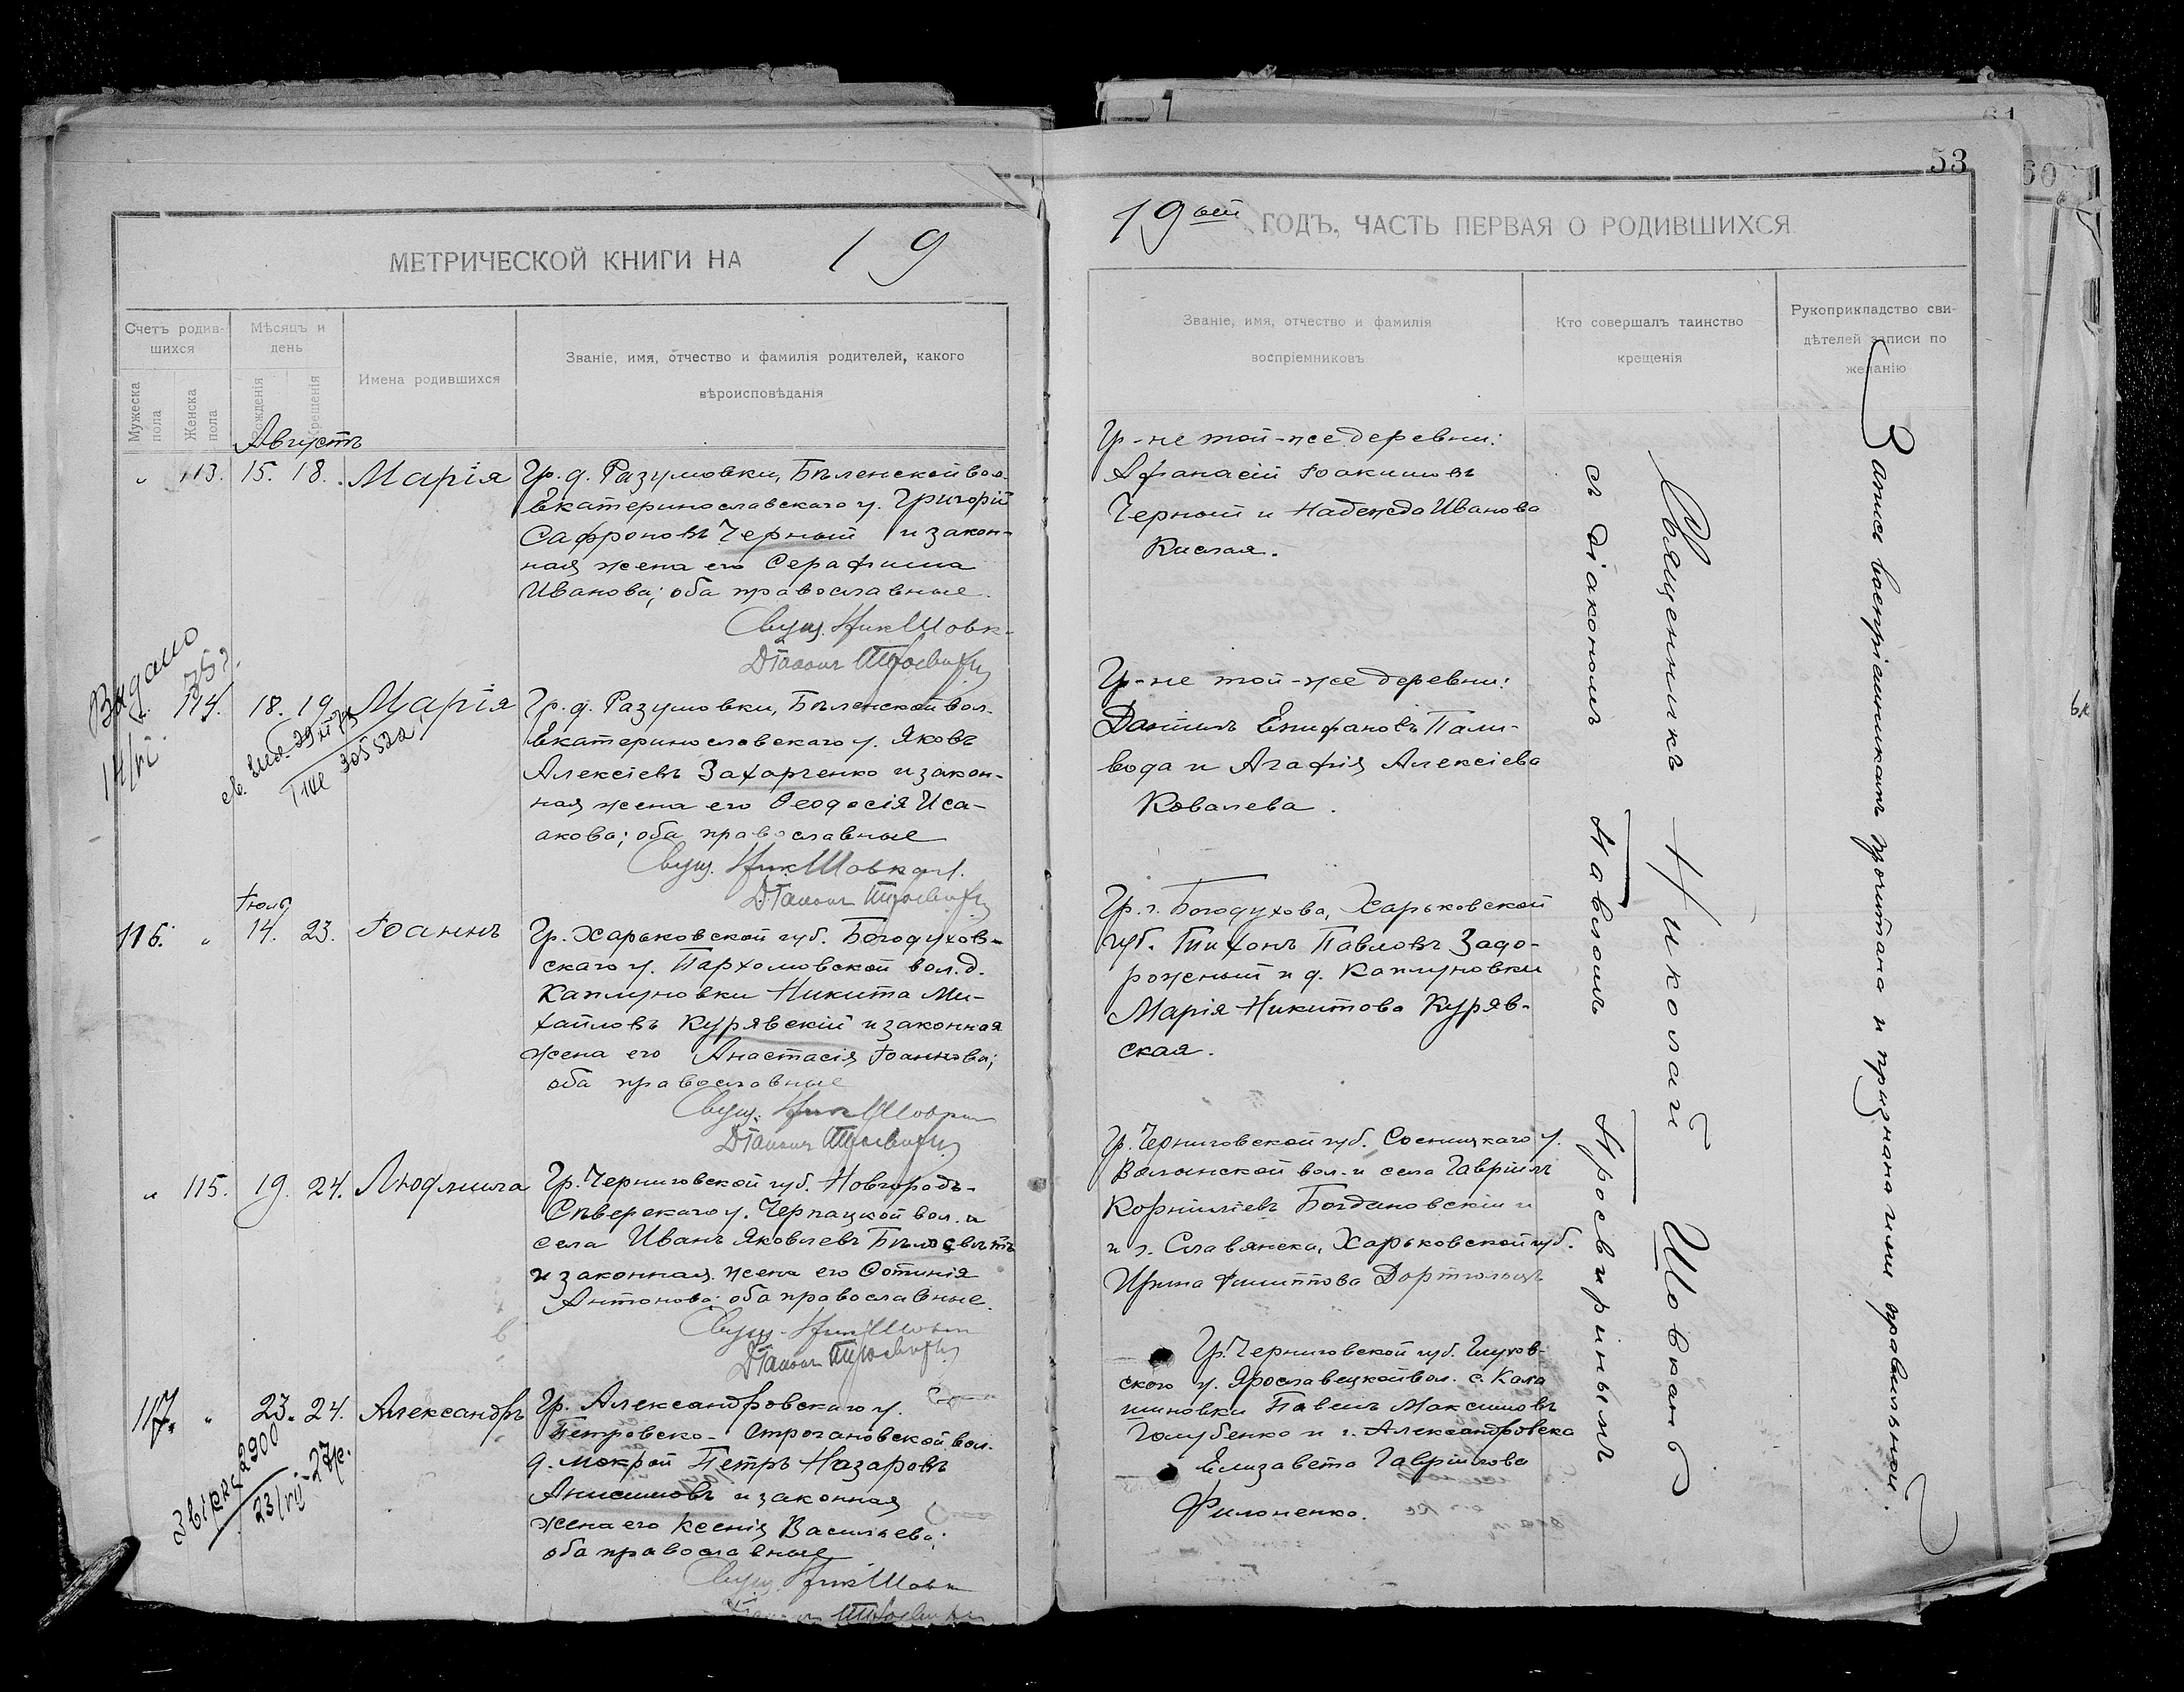 МЕТРИЧЕСКОЙ КНИГИ НА 19
Счетъ родив-
шихся
Мѣсяцъ и
день
Имена родившихся
Званіе, имя, отчество и фамилія родителей, какого
вѣроисповѣданія
Мужеска
пола
Женска
пола
Рожденія
Крещенія
Августъ
" 113. 15. 18. Марія
Гр. д. Разумовки, Бѣленской вол.
Екатеринославскаго у. Григорій
Сафроновъ Черный и закон-
ная жена его Серафима
Иванова; оба православные.
Свящ. Ник Шовк-
Діаконъ
Видано
14/VI 75 г.
" 114. 18. 19. Марія
305520
Гр. д. Разумовки, Бѣленской вол.
Екатеринославскаго у. Яковъ
Алексіевъ Захарченко и закон-
ная жена его Ѳеодосія Иса-
акова; оба православные
Свящ. Ник. Шовкопл.
Діаконъ
Іюль
116. " 14. 23. Іоаннъ
Гр. Харьковской губ. Богодухов-
скаго у. Пархомовской вол. д.
Каплуновки Никита Ми-
хайловъ Курявскій и законная
жена его Анастасія Іоаннова;
оба православные
Свящ. Ник Шовкоп
Діаконъ
" 115. 19. 24. Людмила
Гр. Черниговской губ. Новгородъ-
Сѣверскаго у. Черпацкой вол. и
села Иванъ Яковлевъ Бѣлосвѣтъ
и законная жена его Фотинія
Антонова; оба православные.
Свящ. Ник Шовкоп
Діаконъ
117. " 23. 24. Александръ
Звірка 2900
23/VII-27р.
Гр. Александровскаго у.
Петровско-Строгановской вол.
д. Мокрой Петръ Назаровъ
Анисимовъ и законная
жена его Ксенія Васильева;
оба православные
Свящ. Ник Шовк
53
61
60
19 ый ГОДЪ, ЧАСТЬ ПЕРВАЯ О РОДИВШИХСЯ
Званіе, имя, отчество и фамилія
воспріемниковъ
Кто совершалъ таинство
крещенія
Рукоприкладство сви-
дѣтелей записи по
желанію
Гр-не той-же деревни:
Афанасій Іоакимовъ
Черный и Надежда Иванова
Кислая.
Гр-не той-же деревни:
Даніилъ Епифановъ Пали-
вода и Агафія Алексіева
Ковалева.
Гр. г. Богодухова, Харьковской
губ. Тихонъ Павловъ Задо-
рожный и д. Каплуновки
Марія Никитова Куряв-
ская.
Гр. Черниговской губ. Сосницкаго у.
Волынской вол. и села Гавріилъ
Корниліевъ Богдановскій и
и г. Славянска, Харьковской губ.
Ирина Филиппова Дортгольцъ
Гр. Черниговской губ. Глухов-
скаго у. Ярославецкой вол. с. Кала
шиновки Павелъ Максимовъ
Голубенко и г. Александровска
Елизавета Гавріилова
Филоненко.
Священникъ Николай Шовкопл
съ діакономъ Павломъ Просвиринымъ
Запись воспріемникамъ прочитана и признана ими правильной.